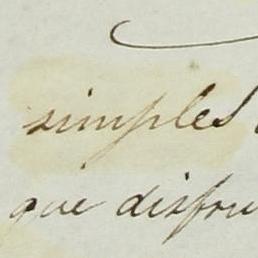 simples
que disfru